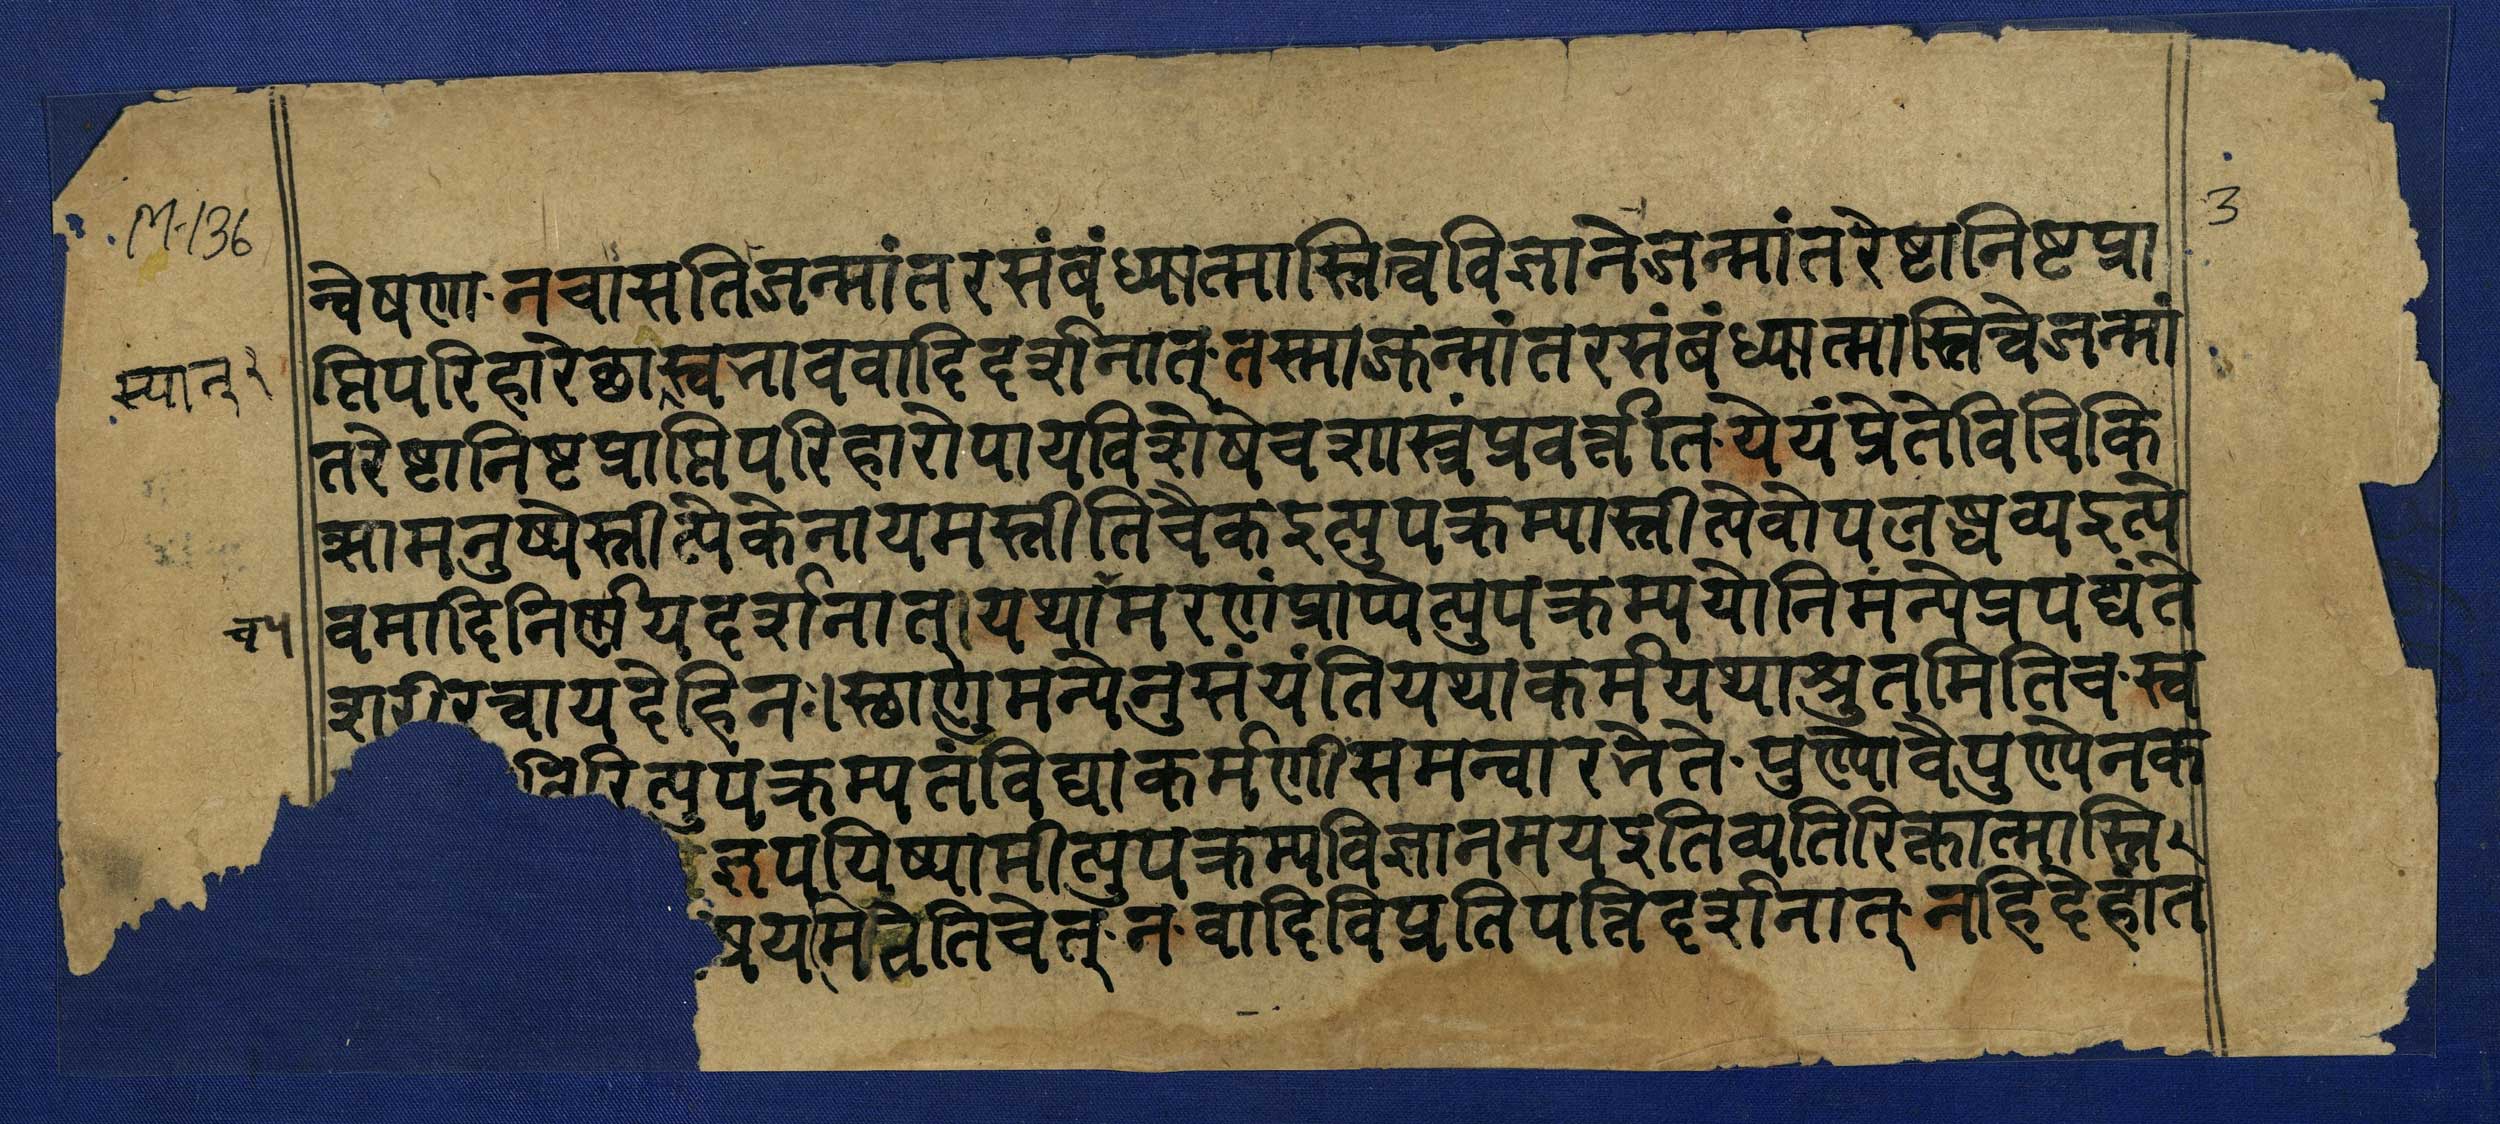 M-136
3
न्वेषणा· न चासति जन्मांतरसंबंध्यात्मास्तित्वविज्ञाने जन्मांतरेष्टानिष्टप्रा
प्तिपरिहारेछा स्वभाववादिदर्शनात्· तस्माज्जन्मांतरसंबंध्यात्मास्तित्वे जन्मां
स्यात् २
तरेष्टानिष्टप्राप्तिपरिहारोपायविशेषे च शास्त्रं प्रवर्त्तते· येयं प्रेते विचिकि
त्सा मनुष्ये स्तीत्येके नायमस्तीति चैक इत्युपक्रम्यास्तीत्येवोपलब्धव्य इत्ये
वमादिनिर्णयदर्शनात्। यथा मरणं प्राप्येत्युपक्रम्य योनिमन्ये प्रपद्यंते
च ५
शरीरत्वाय देहिनः। स्छाणुमन्येनुसंयंति यथाकर्म यथाश्रुतमिति च· स्व
तिरित्युपक्रम्य तं विद्याकर्मणी समन्वारभेते· पुण्यो वै पुण्येन क
ज्ञपयिष्यामीत्युपक्रम्य विज्ञानमय इति व्यतिरिक्तात्मास्ति
षयमेवेति चेत्· न· वादिविप्रतिपत्तिदर्शनात्· न हि देहांत